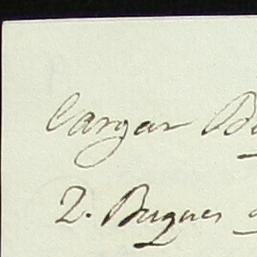 Cargar Bu
2. Buques